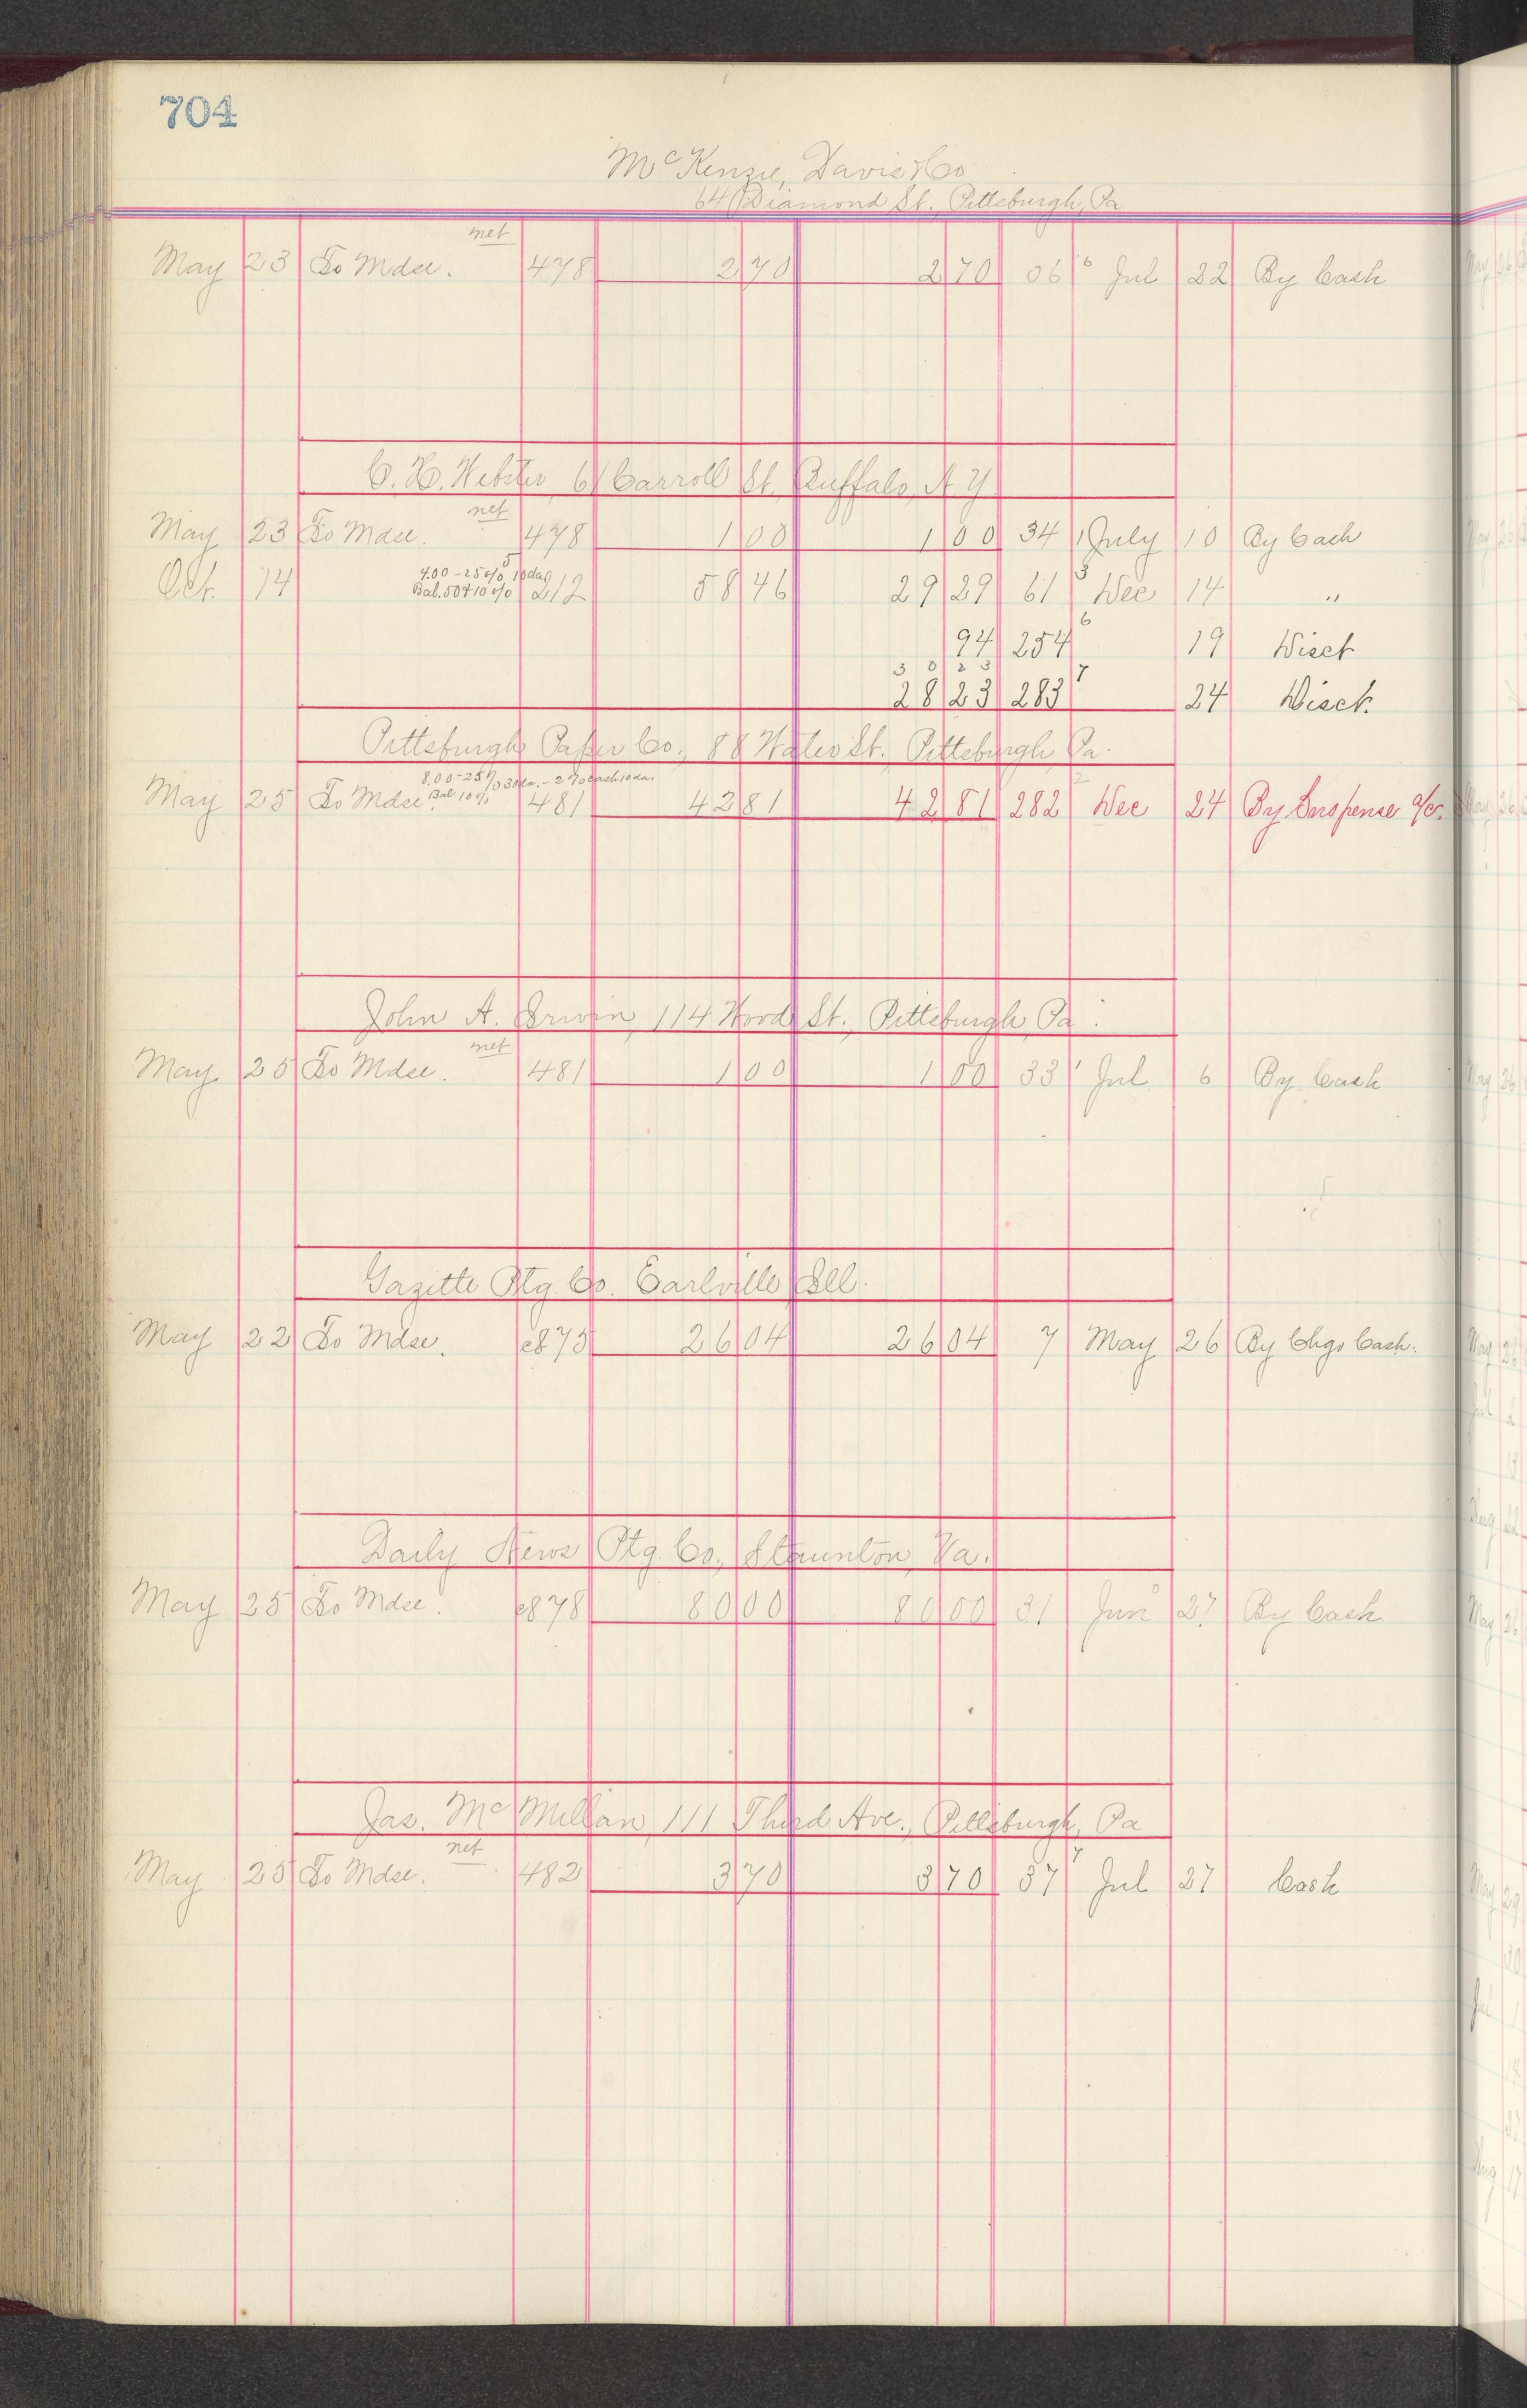 704
McKenzie, Davis & Co
64 Diamond St., Pittsburgh, Pa
net
May 23 To Mdse. 478 2 70 2 70 36 6 Jul 22 By Cash
C. H. Webster, 61 Carroll St. Buffalo, N Y
net
May 23 To Mdse. 478 1 00 1 00 34 1 July 10 By Cash
4.00 - 25% 10 da
Oct. 14 Bal. 50 + 10% 212 58 46 29 29 61 3 Dec 14 "
94 254 6 19 Disct
30 23
28 23 283 7 24 Disct.
Pittsburgh Paper Co., 88 Water St., Pittsburgh, Pa.
8.00 - 25% 30 da. - 2% cash 10 da.
May 25 To Mdse. Bal 10% 481 42 81 42 81 282 2 Dec 24 By Suspense a/c.
John A. Irwin, 114 Wood St., Pittsburgh, Pa.
net
May. 25 To Mdse. 481 1 00 1 00 33 1 Jul 6 By Cash
Gazette Ptg. Co. Earlville Ill.
May 22 To Mdse. c875 26 04 26 04 7 May 26 By Chgo Cash.
Daily News Ptg. Co., Staunton, Va.
May 25 To Mdse. c878 80 00 80 00 31 Jun 27 By Cash
Jas. McMillan, 111 Third Ave., Pittsburgh, Pa
net
May 25 To Mdse. 482 3 70 3 70 37 7 Jul 27 Cash